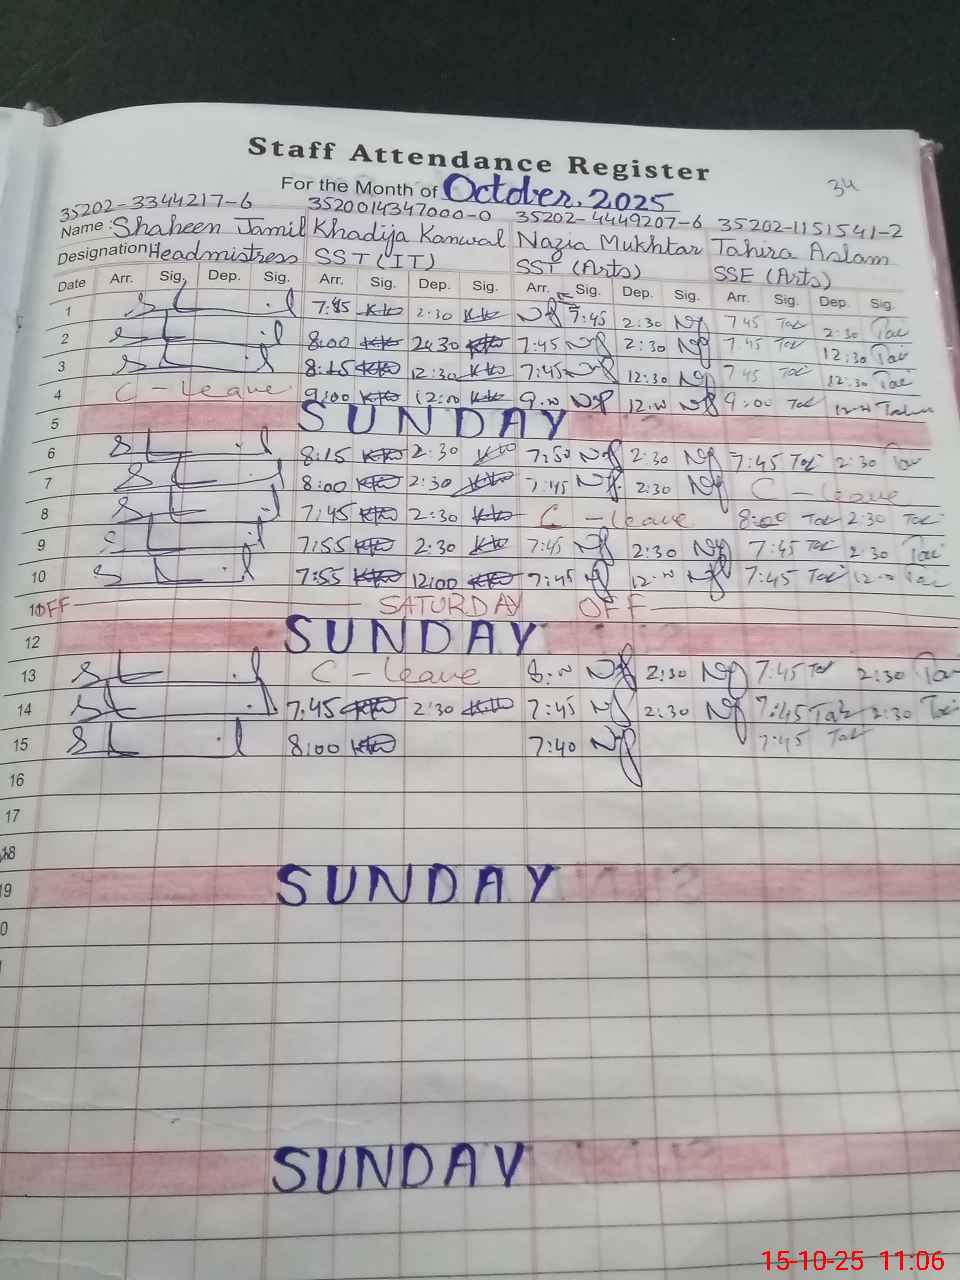 Staff Attendance Register
34
For the Month of October, 2025
35202-3344217-6 3520014347000-0 35202-4449207-6 35202-1151541-2
Name: Shaheen Jamil Khadija Kanwal Nazia Mukhtar Tahira Aslam
Designation Headmistress SST (IT) SST (Arts) SSE (Arts)
Date Arr. Sig. Dep. Sig. Arr. Sig. Dep. Sig. Arr. Sig. Dep. Sig. Arr. Sig. Dep. Sig.
1 2:30 7:45 2:30 7 45 2:30
2 8:00 7:45 2:30 7:45 12:30
3 8:15 12:30 7:45 12:30 7 45 12:30
4 C - Leave 9:00 9:00
5 SUNDAY
6 8:15 2:30 7:50 2:30 7:45 2:30
7 8:00 2:30 7:45 2:30 C - Leave
8 7:45 2:30 C - Leave 8:00 2:30
9 7:55 2:30 7:45 2:30 7:45 2:30
10 7:55 12:00 7:45 7:45
OFF SATURDAY OFF
12 SUNDAY
13 C - Leave 2:30 7:45 2:30
14 7:45 2:30 7:45 2:30 7:45 2:30
15 8:00 7:40 7:45
16
17
18
19 SUNDAY
0
SUNDAY
15-10-25 11:06